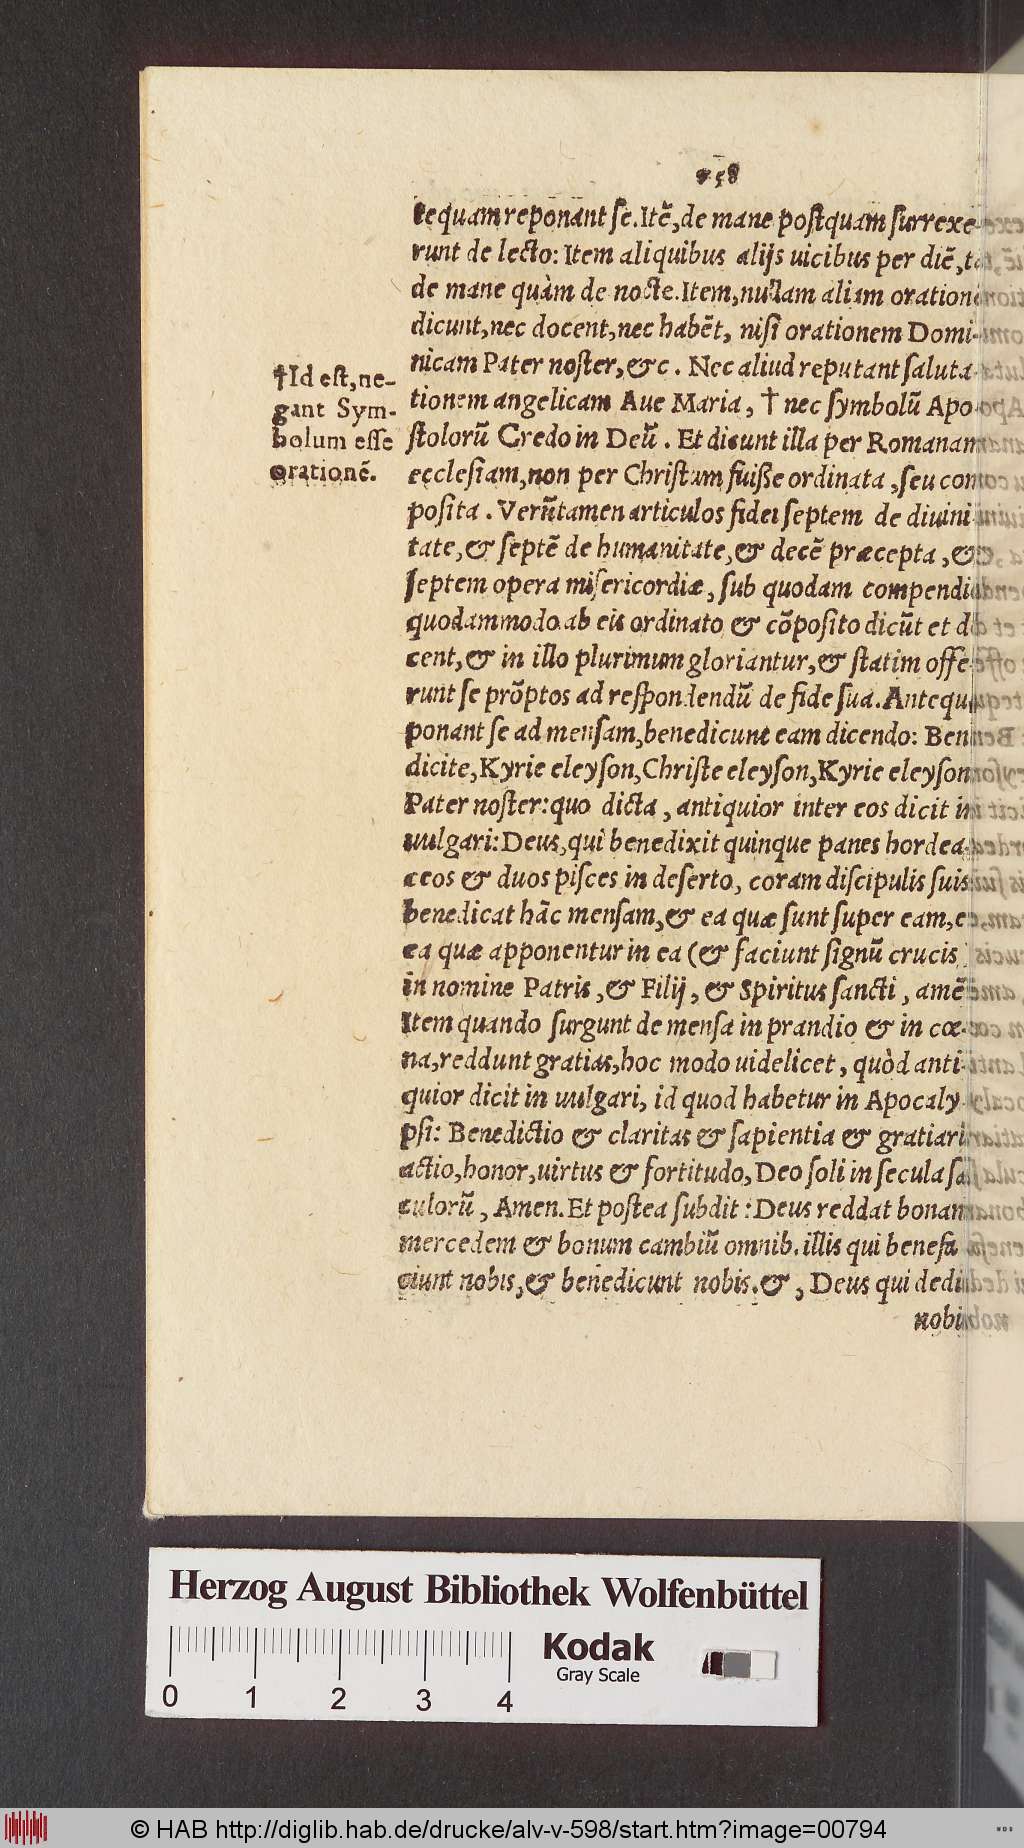 758
tequam reponant se. Itē, de mane postquam surrexe-
runt de lecto: Item aliquibus alijs uicibus per diē, tā
de mane quàm de nocte. Item, nullam aliam orationē
dicunt, nec docent, nec habēt, nisi orationem Domi-
nicam Pater noster, &c. Nec aliud reputant saluta-
tionem angelicam Aue Maria, † nec symbolū Apo-
stolorū Credo in Deū. Et dicunt illa per Romanam
ecclesiam, non per Christum fuisse ordinata, seu com
posita. Verūtamen articulos fidei septem de diuini
tate, & septē de humanitate, & decē præcepta, &
septem opera misericordiæ, sub quodam compendio
quodammodo ab eis ordinato & cōposito dicūt et do
cent, & in illo plurimum gloriantur, & statim offe-
runt se prōptos ad respondendū de fide sua. Antequā
ponant se ad mensam, benedicunt eam dicendo: Bene
dicite, Kyrie eleyson, Christe eleyson, Kyrie eleyson
Pater noster: quo dicta, antiquior inter eos dicit in
uulgari: Deus, qui benedixit quinque panes hordea-
ceos & duos pisces in deserto, coram discipulis suis:
benedicat hāc mensam, & ea quæ sunt super eam, &
ea quæ apponentur in ea (& faciunt signū crucis)
in nomine Patris, & Filij, & Spiritus sancti, amē
Item quando surgunt de mensa in prandio & in cœ-
na, reddunt gratias, hoc modo uidelicet, quòd anti-
quior dicit in uulgari, id quod habetur in Apocaly
psi: Benedictio & claritas & sapientia & gratiarū
actio, honor, uirtus & fortitudo, Deo soli in secula sæ
culorū, Amen. Et postea subdit: Deus reddat bonam
mercedem & bonum cambiū omnib. illis qui benefa
ciunt nobis, & benedicunt nobis. &, Deus qui dedit
nobis
†Id est, ne-
gant Sym-
bolum esse
orationē.
Herzog August Bibliothek Wolfenbüttel
Kodak
Gray Scale
0 1 2 3 4
© HAB http://diglib.hab.de/drucke/alv-v-598/start.htm?image=00794